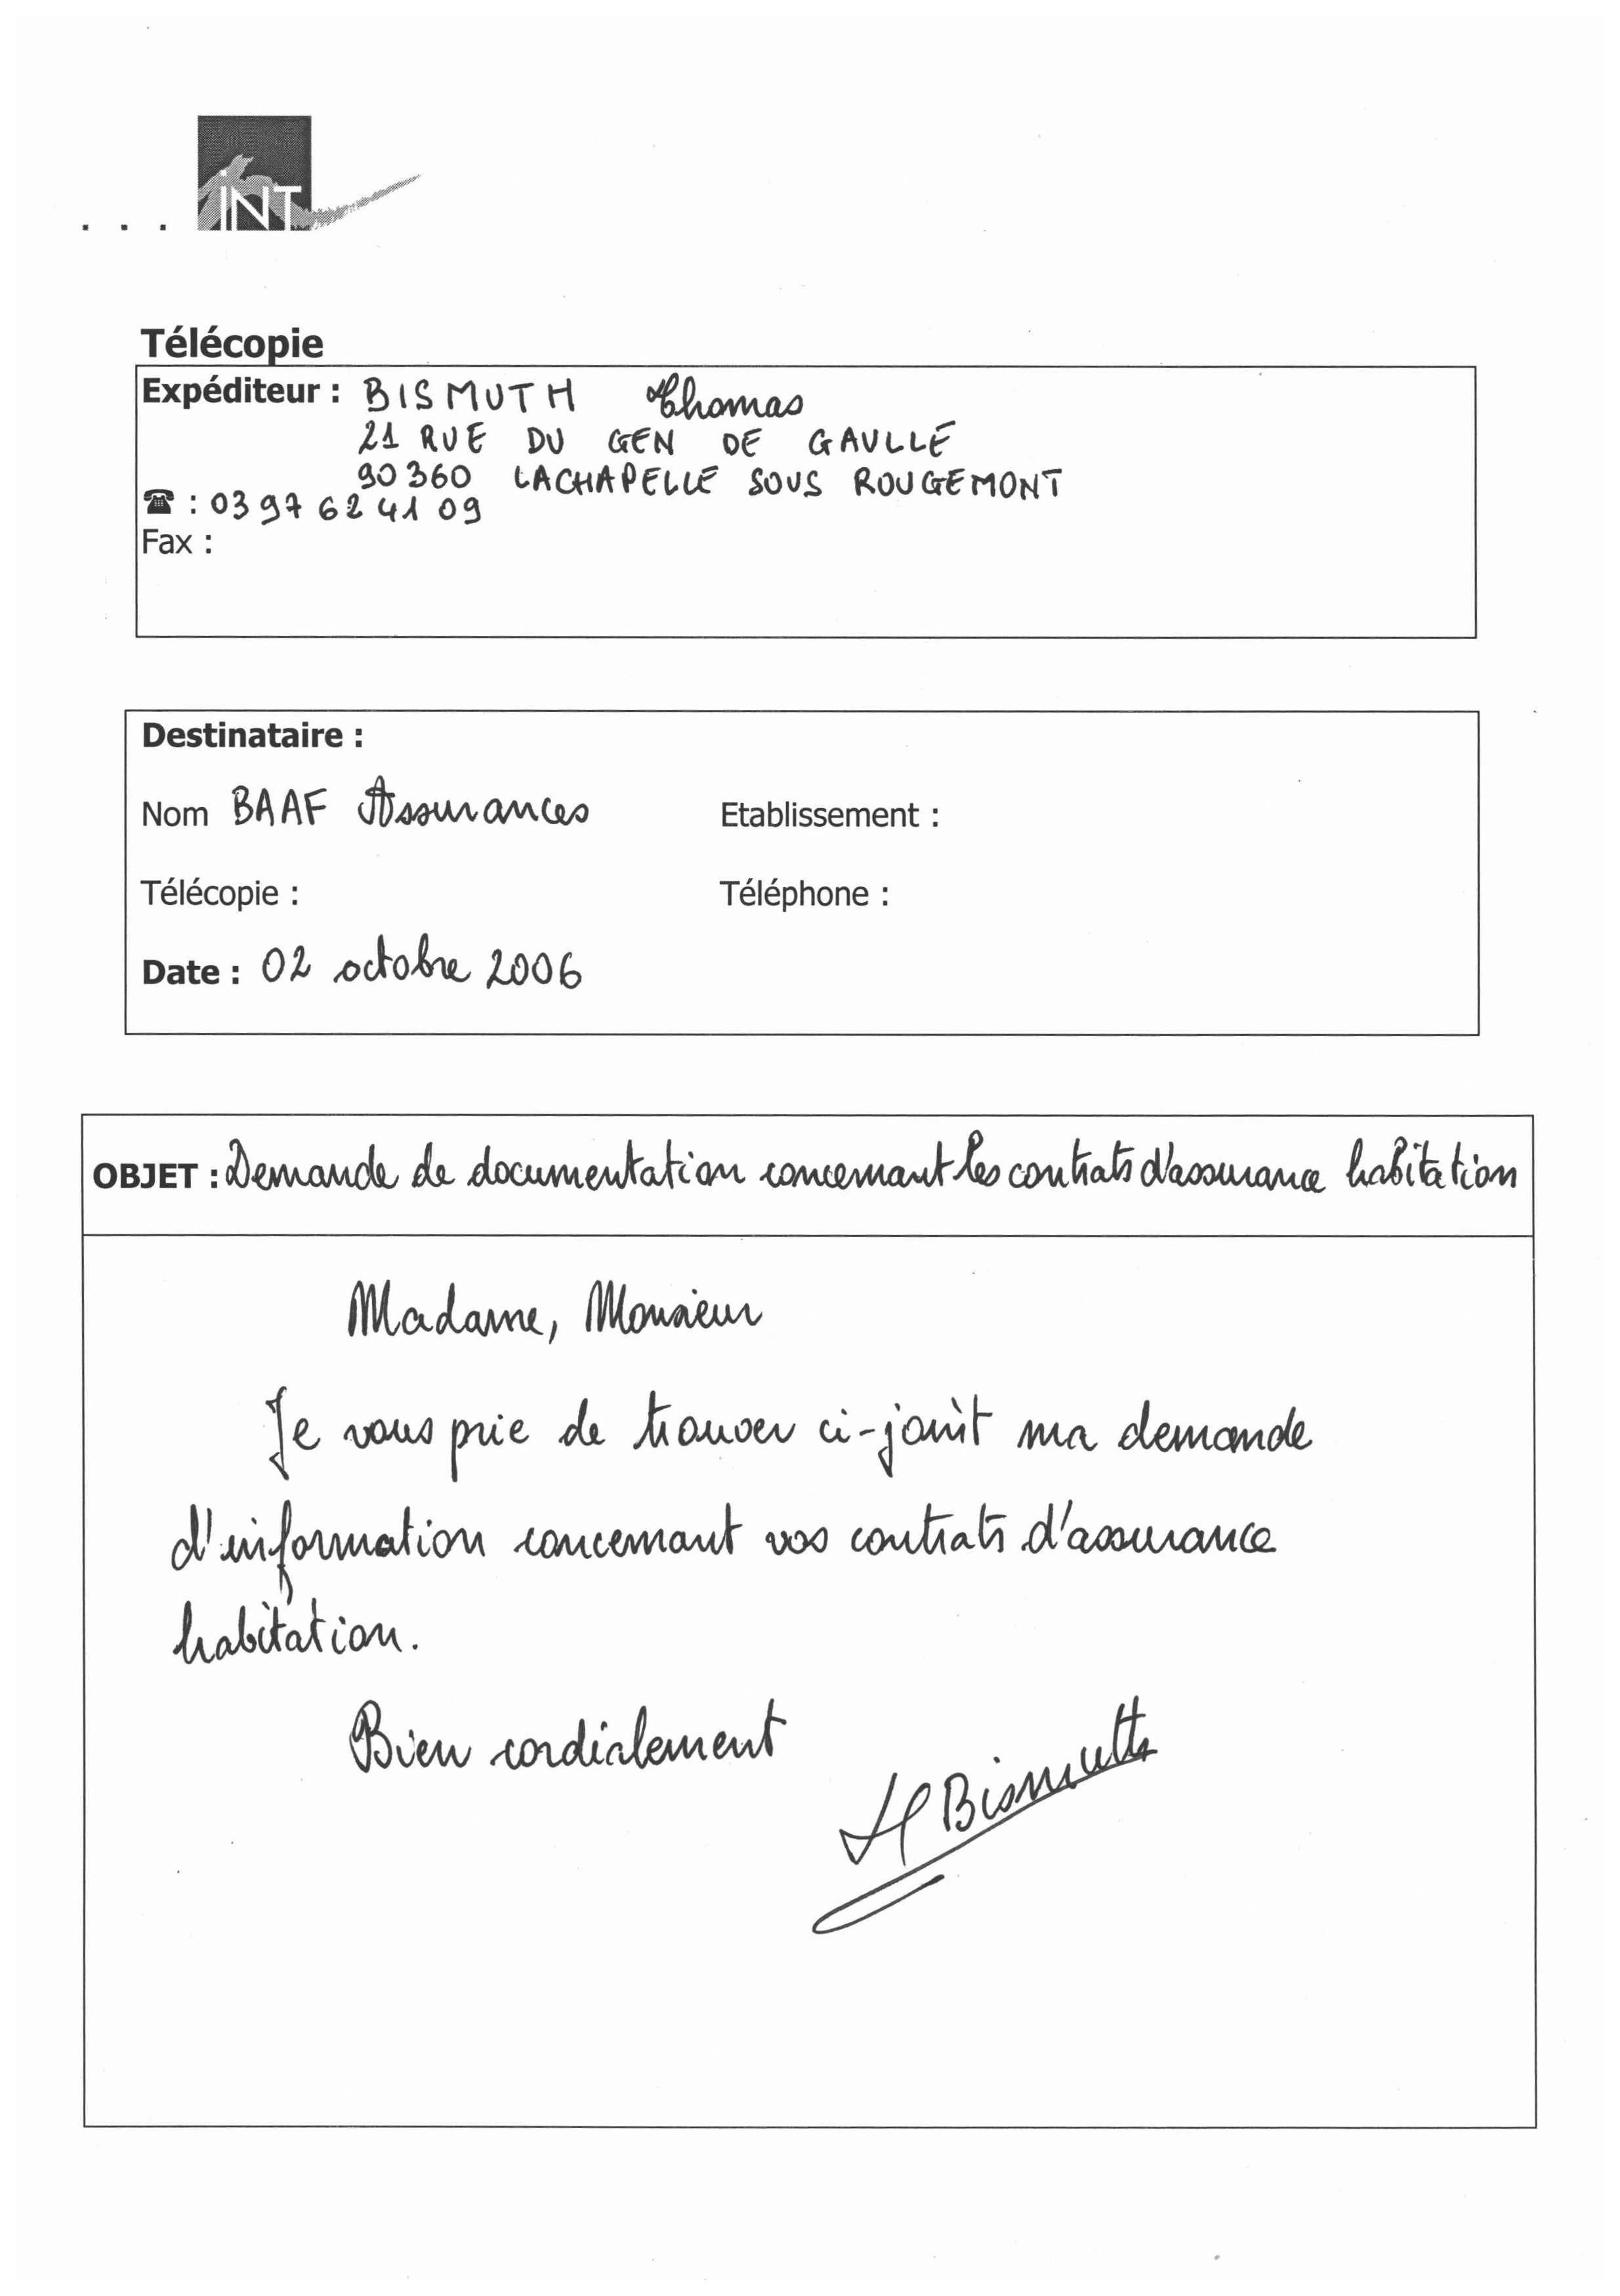 ... INT
Télécopie
Expéditeur : BISMUTH Thomas
21 RUE DU GEN DE GAULLE
90360 LACHAPELLE SOUS ROUGEMONT
☎ : 03 97 62 41 09
Fax :
Destinataire :
Nom BAAF Assurances Etablissement :
Télécopie : Téléphone :
Date : 02 octobre 2006
OBJET : Demande de documentation concernant les contrats d'assurance habitation
Madame, Monsieur
Je vous prie de trouver ci-joint ma demande
d'information concernant vos contrats d'assurance
habitation.
Bien cordialement
Bismuth